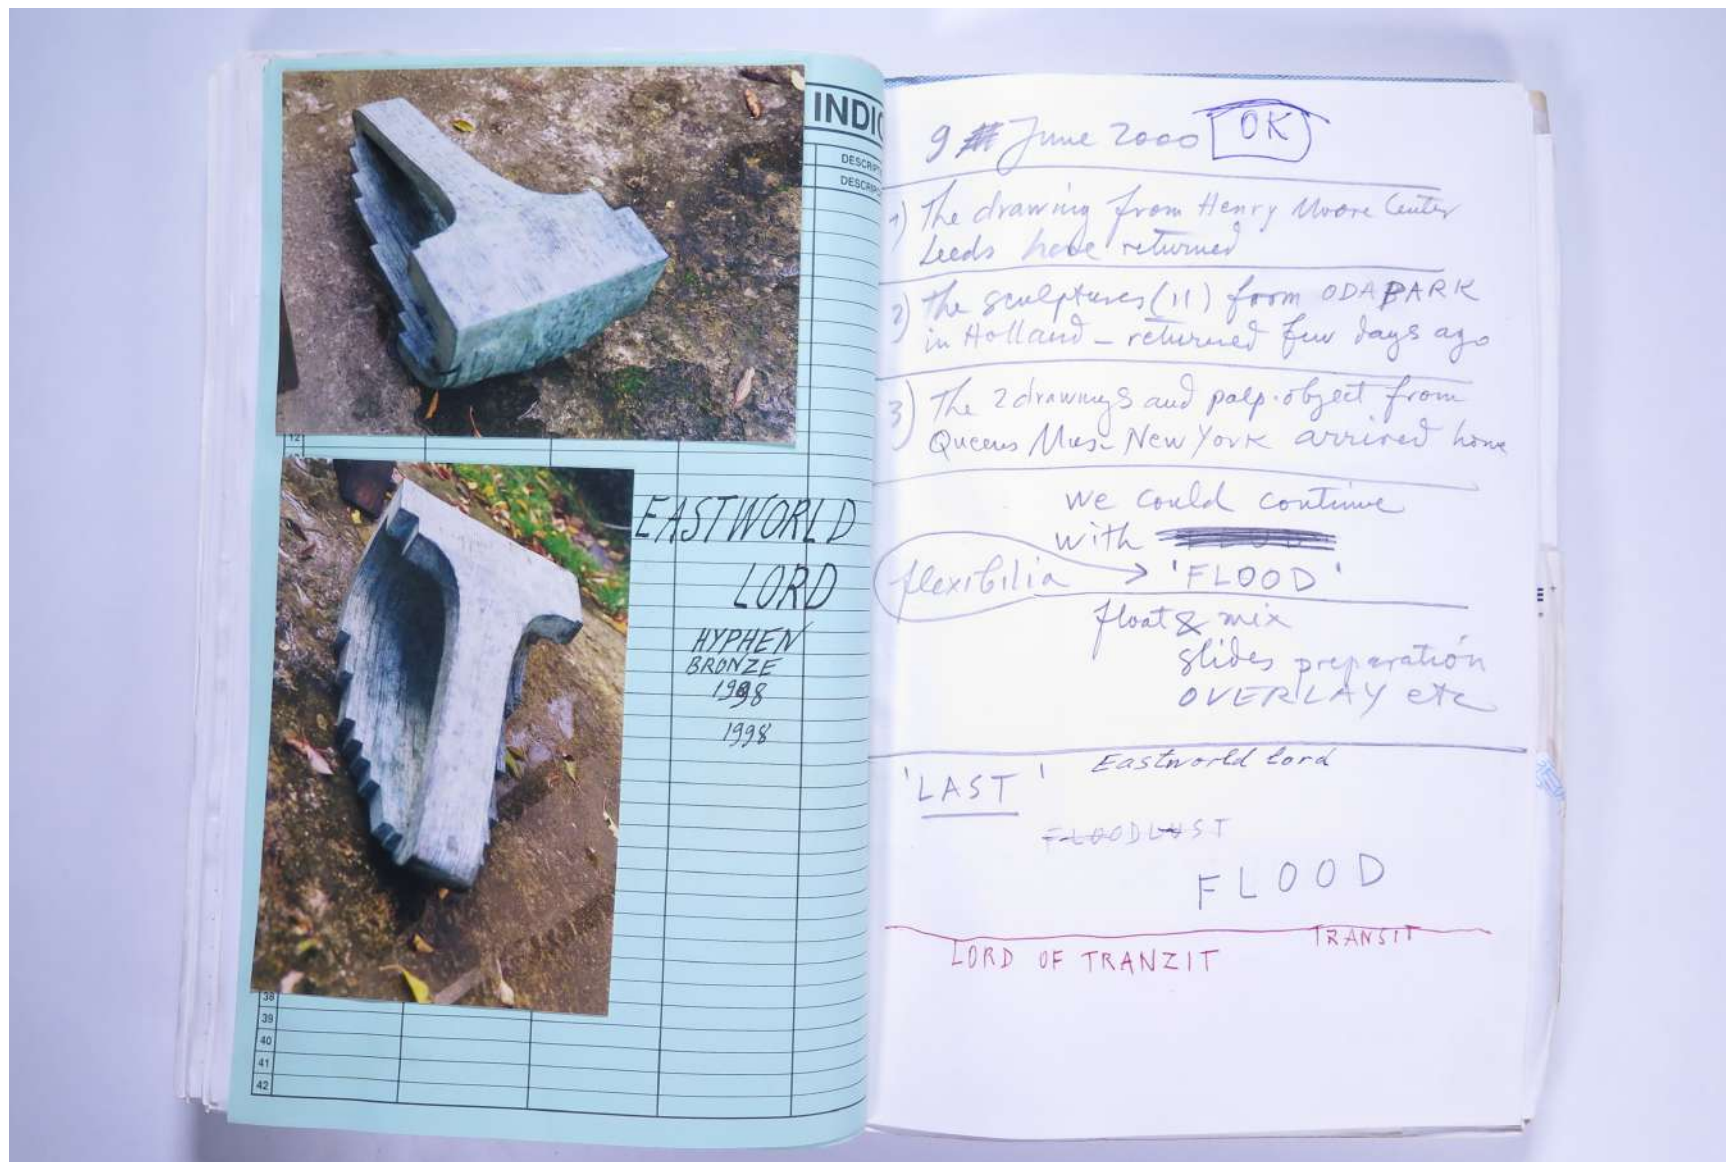 INDIC
DESCRIPT
DESCRIP
12
EASTWORLD
LORD
HYPHEN
BRONZE
1998
1998
38
39
40
41
42
9 June 2000 OK
1) The drawing from Henry Moore Center
Leeds have returned
2) The sculptures (11) from ODAPARK
in Holland – returned few days ago
3) The 2 drawings and palp. object from
Queens Mus– New York arrived home
we could continue
with
flexibilia → 'FLOOD'
float & mix
slides preparation
OVERLAY etc
'LAST' Eastworld Lord
FLOODLAST
FLOOD
TRANSIT
LORD OF TRANZIT